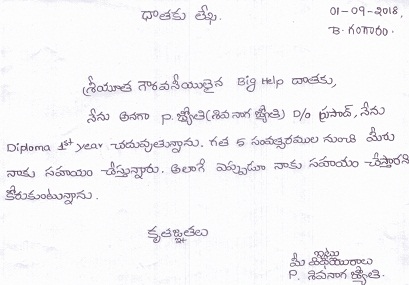 దాతకు లేఖ.
01-09-2018,
B. గంగారం.
శ్రీయూత గౌరవనీయులైన Big Help దాతకు,
నేను అనగా P. జ్యోతి(శివనాగ జ్యోతి) D/o ప్రసాద్, నేను
Diploma 1st year చదువుతున్నాను. గత 5 సంవత్సరముల నుంచి మీరు
నాకు సహాయం చేస్తున్నారు. అలాగే ఎప్పుడూ నాకు సహాయం చేస్తారని
కోరుకుంటున్నాను.
కృతజ్ఞతలు
ఇట్లు
మీ విధేయురాలు
P. శివనాగ జ్యోతి.